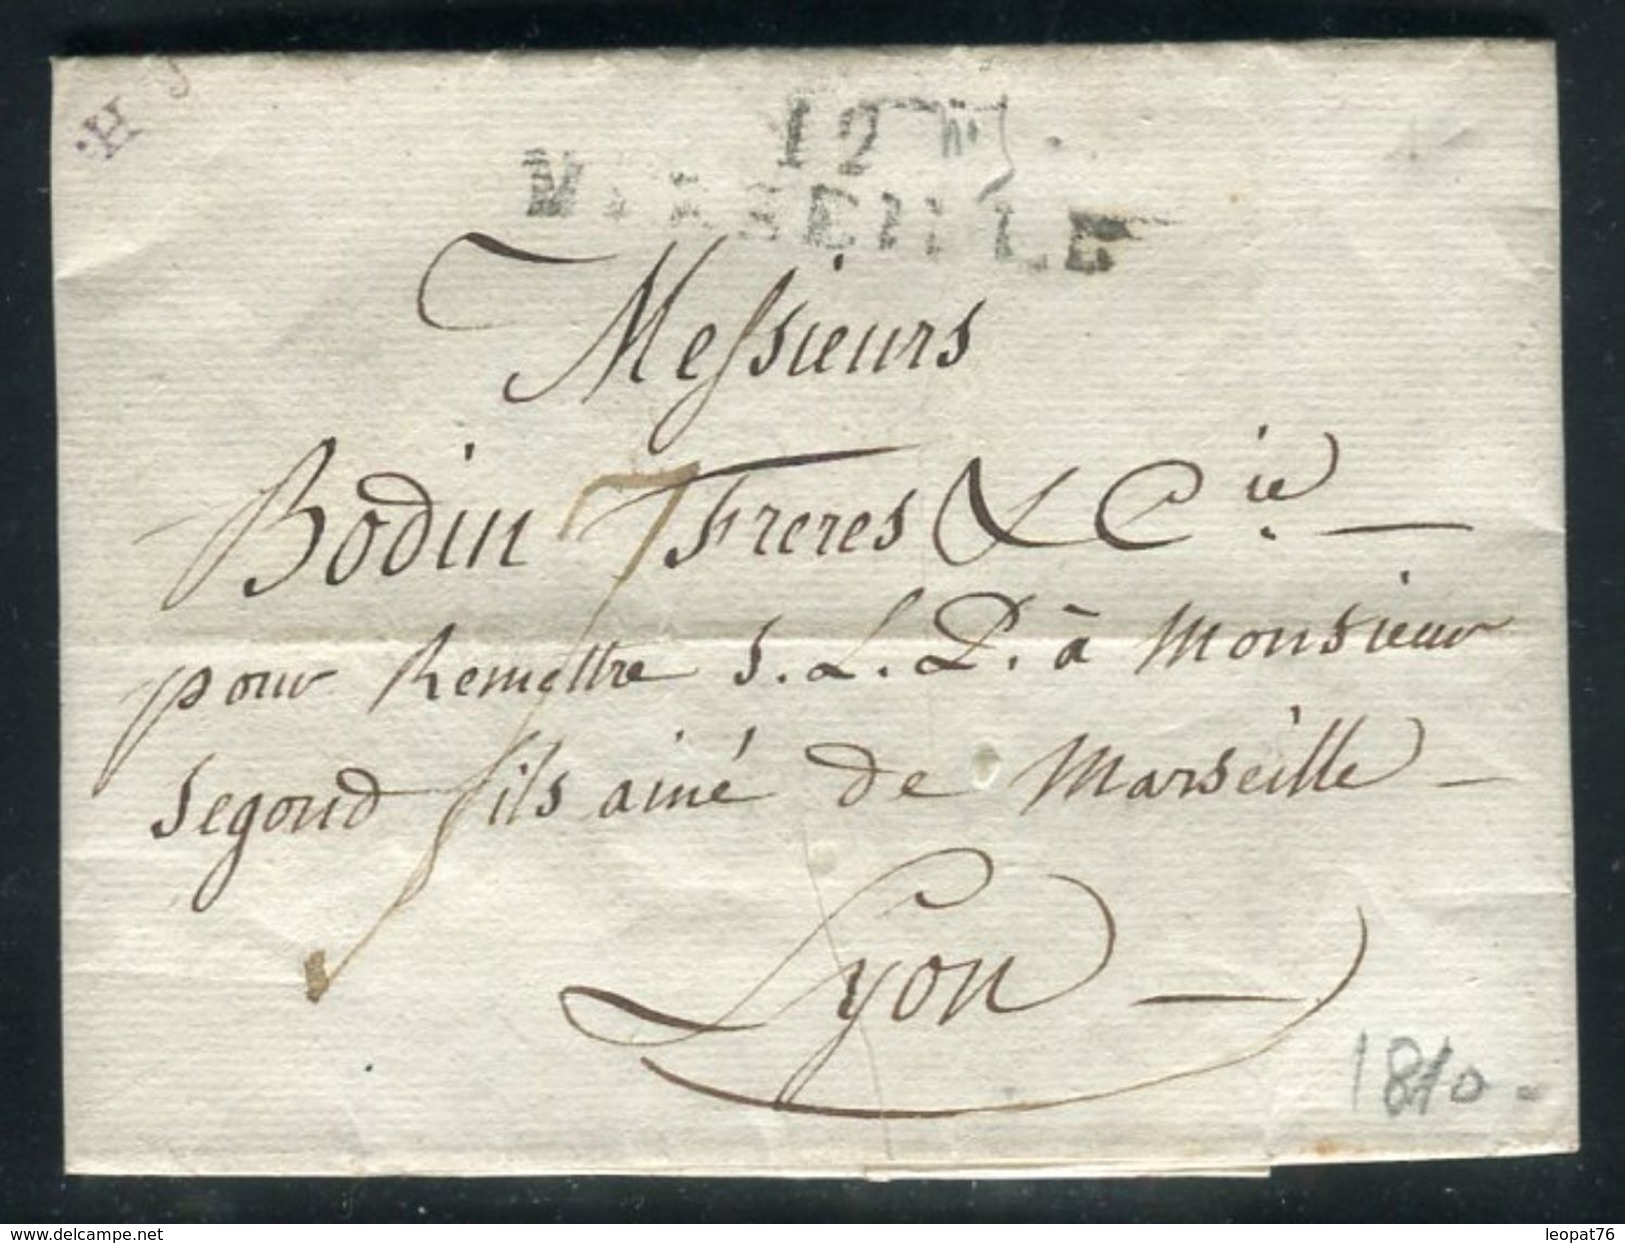 H
12
MARSEILLE
Messieurs
Bodin Freres & Cie
7
pour Remettre S. L. P. à Monsieur
Segond fils ainé de Marseille
Lyon
1810
leopat76